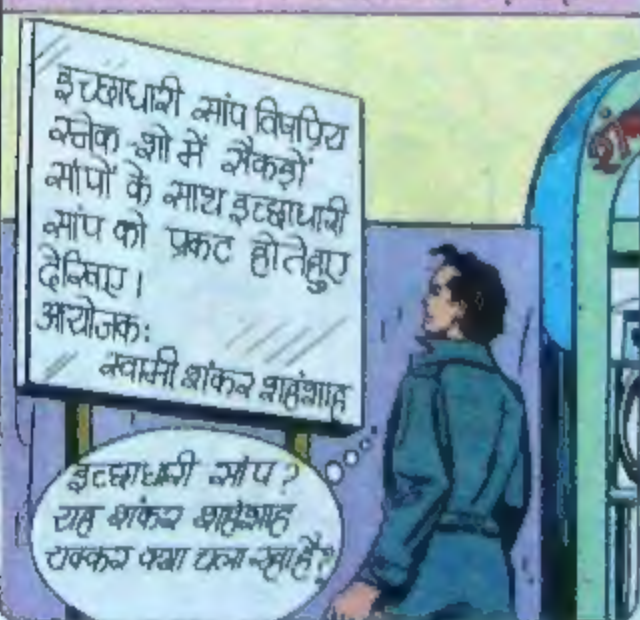 इच्छाधारी सांप विषप्रिय
स्नेक शो में सैकड़ों
सांपों के साथ इच्छाधारी
सांप को प्रकट होते हुए
देखिए।
आयोजक:
स्वामी शंकर शहंशाह
शं
इच्छाधारी सांप?
यह शंकर शहंशाह
चक्कर क्या चला रहा है?